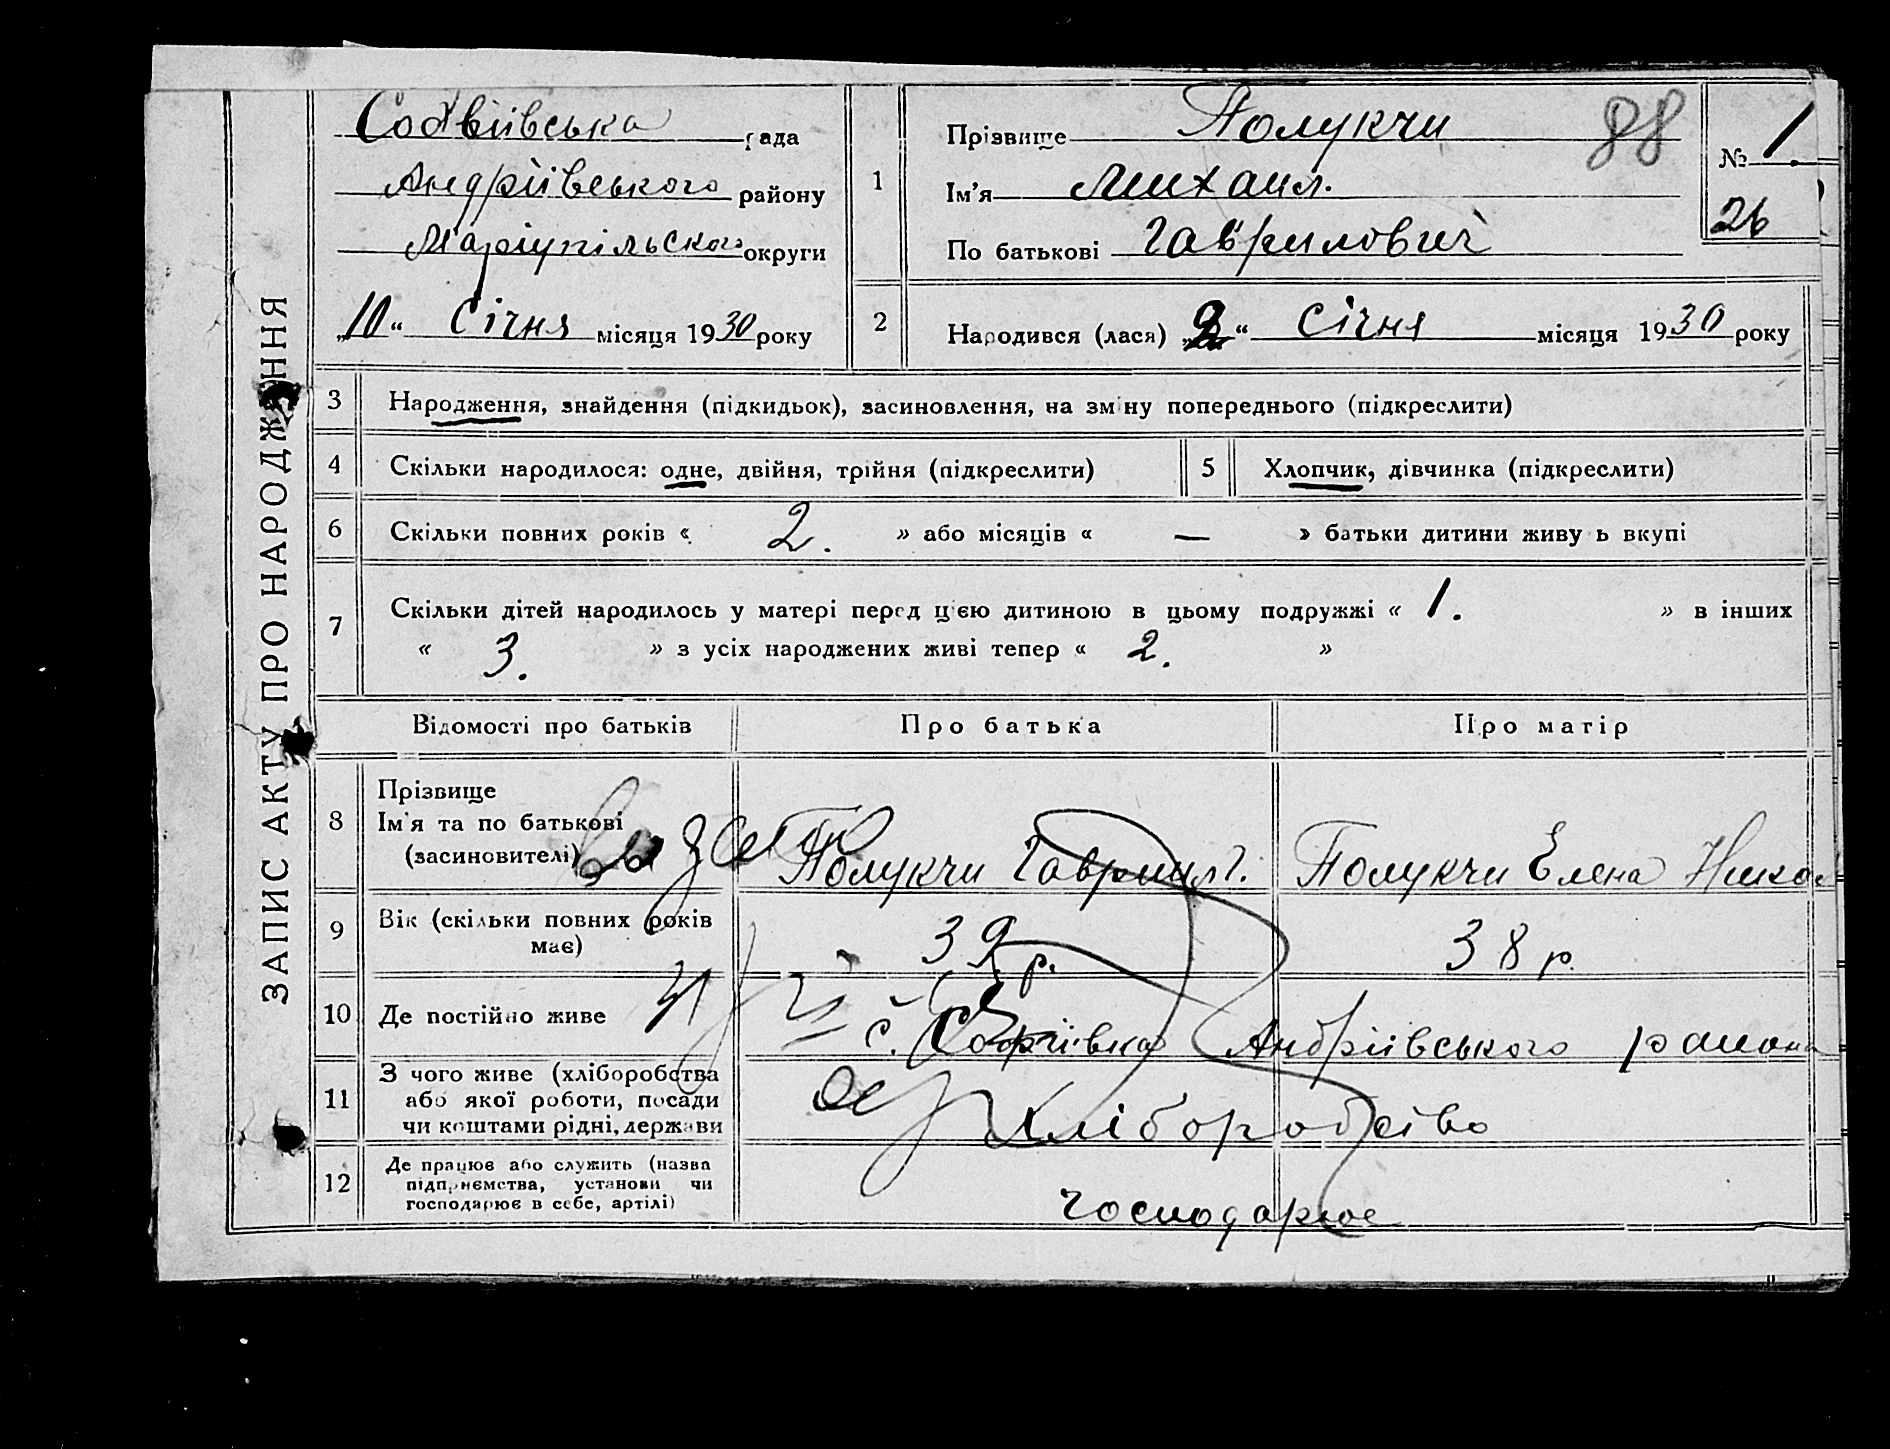 ЗАПИС АКТУ ПРО НАРОДЖЕННЯ
рада
Андріївського району
Маріупільского округи
„10“ Січня місяця 1930 року
1
Прізвище Полукчи
Ім'я Михаил.
По батькові Гаврилович
88
№ 1.
26
2
Народився (лася) „ “ Січня місяця 1930 року
3
Народження, знайдення (підкидьок), засиновлення, на зміну попереднього (підкреслити)
4
Скільки народилося: одне, двійня, трійня (підкреслити)
5
Хлопчик, дівчинка (підкреслити)
6
Скільки повних років « 2. » або місяців « — » батьки дитини живуть вкупі
7
Скільки дітей народилось у матері перед цією дитиною в цьому подружжі « 1. » в інших
« 3. » з усіх народжених живі тепер « 2. »
Відомості про батьків
Про батька
Про матір
8
Прізвище
Ім'я та по батькові
(засиновителі)
Полукчи Гавриил Г.
Полукчи Елена Никол
9
Вік (скільки повних років
має)
39 р.
38 р.
10
Де постійно живе
с. Андріївського района
11
З чого живе (хліборобства
або якої роботи, посади
чи коштами рідні, держави
Хліборобство
12
Де працює або служить (назва
підприємства, установи чи
господарює в себе, артілі)
Господарює